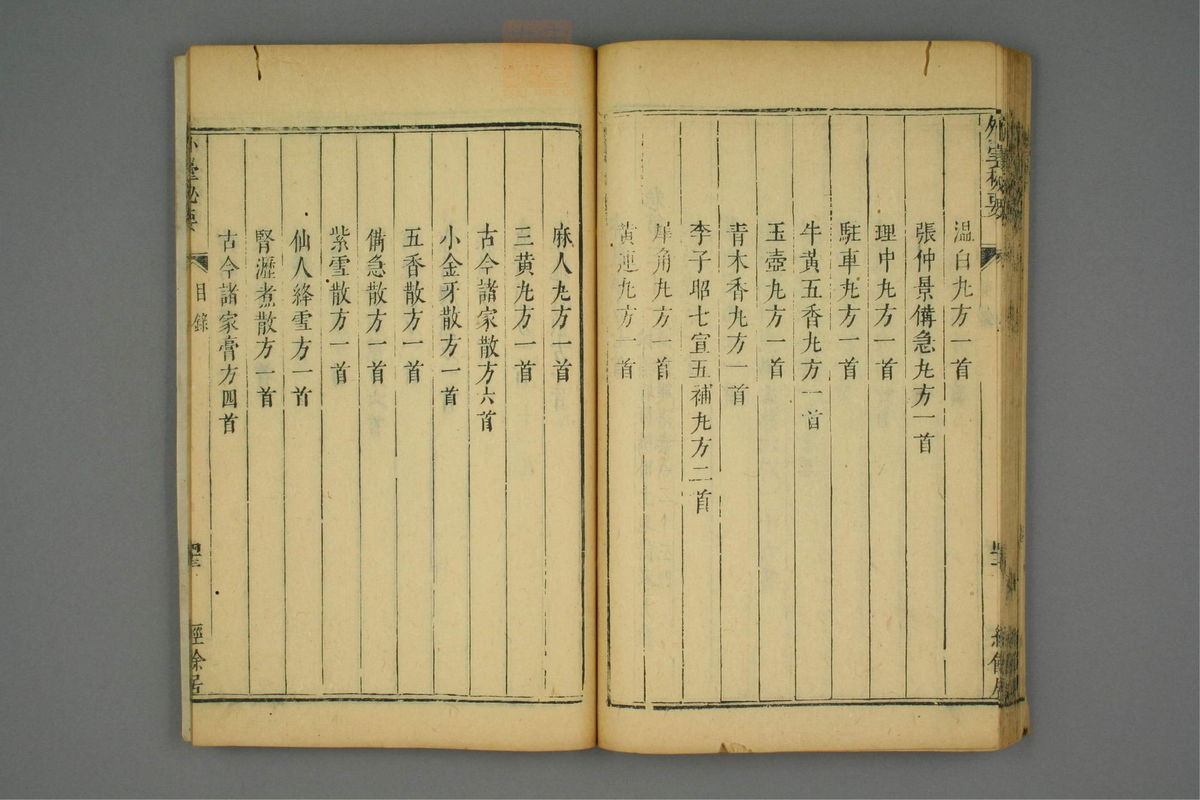 外臺秘要
經餘居
溫白九方一首
張仲景備急九方一首
理中九方一首
駐車九方一首
牛黃五香九方一首
玉壺九方一首
青木香九方一首
李子昭七宣五補九方二首
犀角九方一首
黃連九方一首
麻人九方一首
三黃九方一首
古今諸家散方六首
小金牙散方一首
五香散方一首
備急散方一首
紫雪散方一首
仙人絳雪方一首
腎瀝煮散方一首
古今諸家膏方四首
外臺秘要
目錄
經餘居